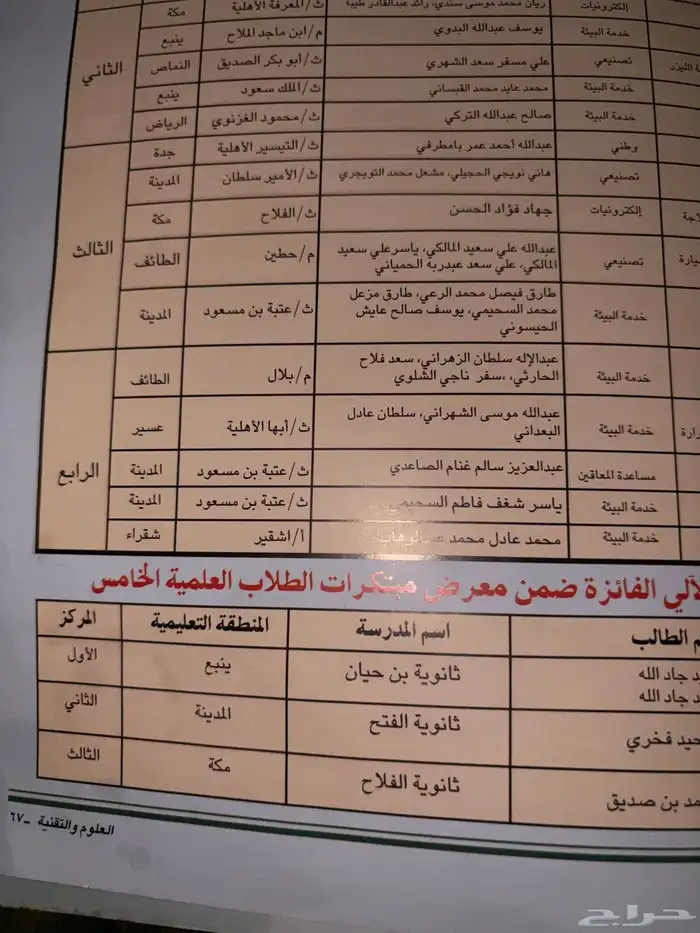 إلكترونيات ريان محمد موسى سندي، رائد عبدالقادر طيبة ث/المعرفة الأهلية مكة
خدمة البيئة يوسف عبدالله البدوي م/ابن ماجد الملاح ينبع
تصنيعي علي مسفر سعد الشهري ث/أبو بكر الصديق النماص الثاني
خدمة البيئة محمد عايد محمد القبساني ث/الملك سعود ينبع
خدمة البيئة صالح عبدالله التركي ث/محمود الغزنوي الرياض
وطني عبدالله أحمد عمر بامطرفي ث/التيسير الأهلية جدة
تصنيعي هاني نويجي الحجيلي، مشعل محمد التويجري ث/الأمير سلطان المدينة
إلكترونيات جهاد فؤاد الحسن ث/الفلاح مكة الثالث
تصنيعي عبدالله علي سعيد المالكي، ياسر علي سعيد
المالكي، علي سعد عبدربة الحمياني م/حطين الطائف
خدمة البيئة طارق فيصل محمد الرعي، طارق مزعل
محمد السحيمي، يوسف صالح عايش
الحيسوني ث/عتبة بن مسعود المدينة
خدمة البيئة عبدالإله سلطان الزهراني، سعد فلاح
الحارثي، سفر ناجي الشلوي م/بلال الطائف
خدمة البيئة عبدالله موسى الشهراني، سلطان عادل
البعداني ث/أبها الأهلية عسير
مساعدة المعاقين عبدالعزيز سالم غنام الصاعدي ث/عتبة بن مسعود المدينة الرابع
خدمة البيئة ياسر شغف فاطم السحيمي ث/عتبة بن مسعود المدينة
خدمة البيئة محمد عادل محمد عبدالوهاب أ/اشقير شقراء
الفائزة ضمن معرض مبتكرات الطلاب العلمية الخامس
الطالب اسم المدرسة المنطقة التعليمية المركز
جاد الله
جاد الله ثانوية بن حيان ينبع الأول
فخري ثانوية الفتح المدينة الثاني
بن صديق ثانوية الفلاح مكة الثالث
العلوم والتقنية - ٦٧
حراج